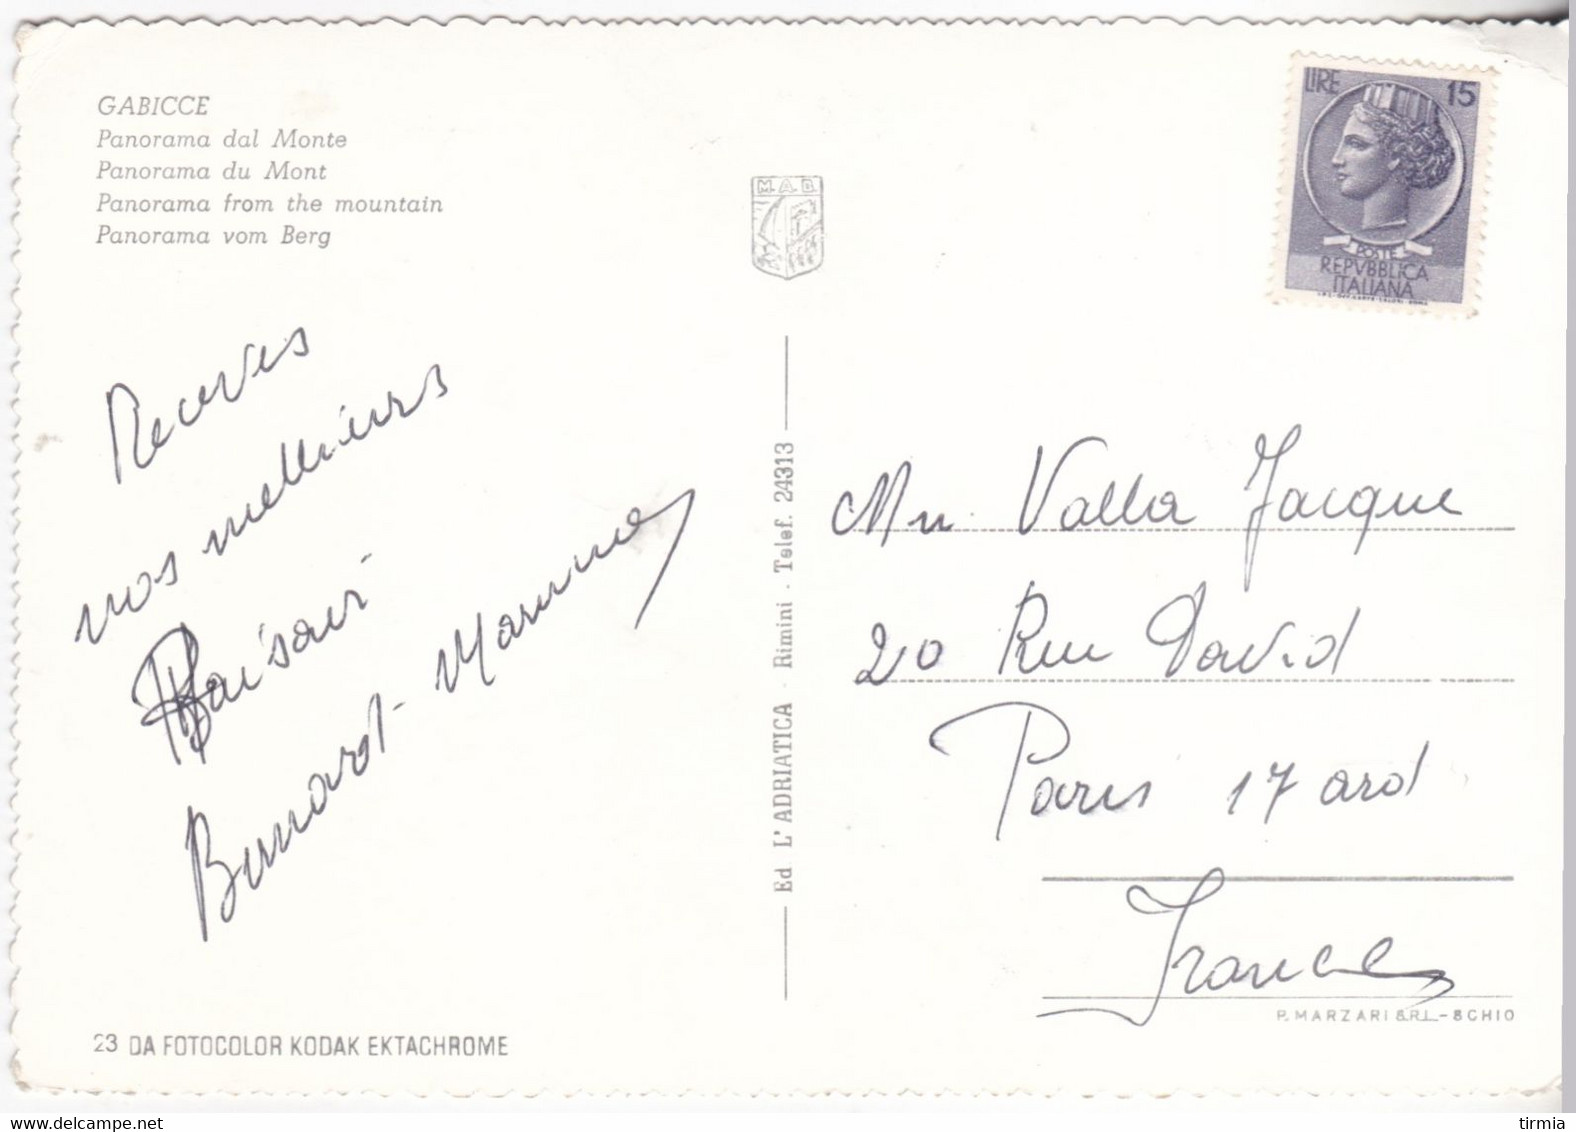 GABICCE
Panorama dal Monte
Panorama du Mont
Panorama from the mountain
Panorama vom Berg
M.A.D.
LIRE 15
POSTE
REPVBBLICA
ITALIANA
Receves
nos meilleurs
Baisair
Bernard - Marine
Ed. L'ADRIATICA - Rimini - Telef. 24313
Mr Valla Jacque
20 Rue David
Paris 17 ard
France
P. MARZARI S.R.L. - SCHIO
23 DA FOTOCOLOR KODAK EKTACHROME
www.delcampe.net
tirmia